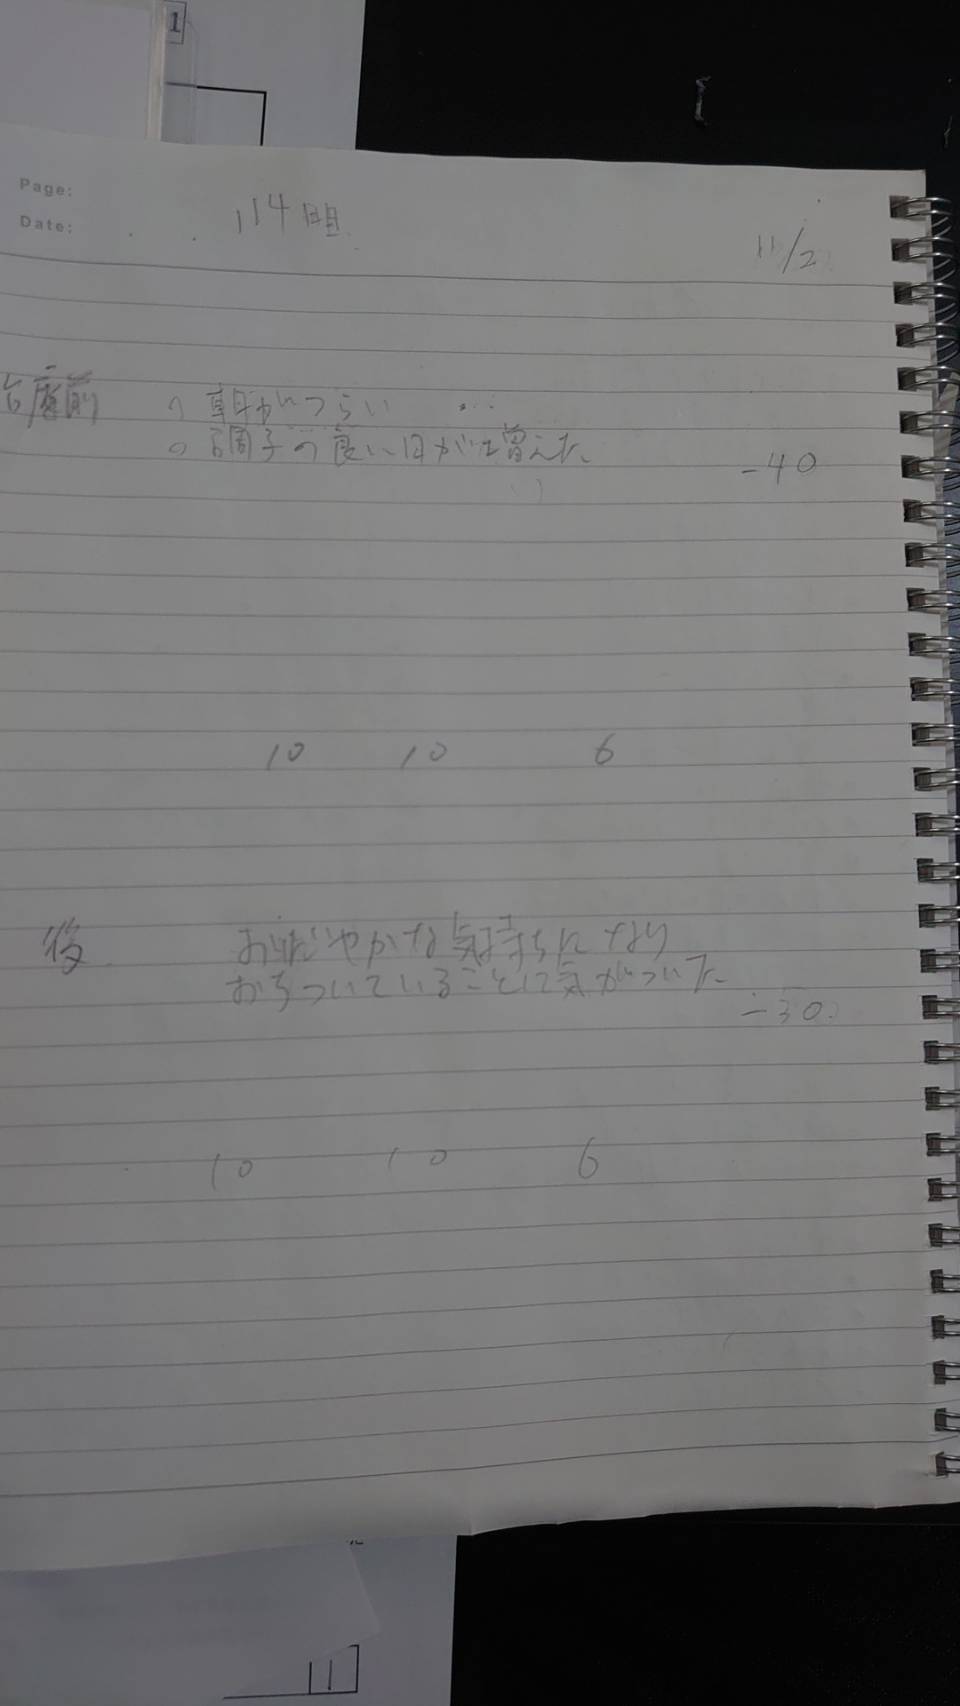 1
Page:
Date:
114回目
11/2
治療前
○ 朝がつらい ...
○ 調子の良い日が増えた。
-40
10 10 6
後
おだやかな気持ちになり
おちついていることに気がついた。
-30
10 10 6